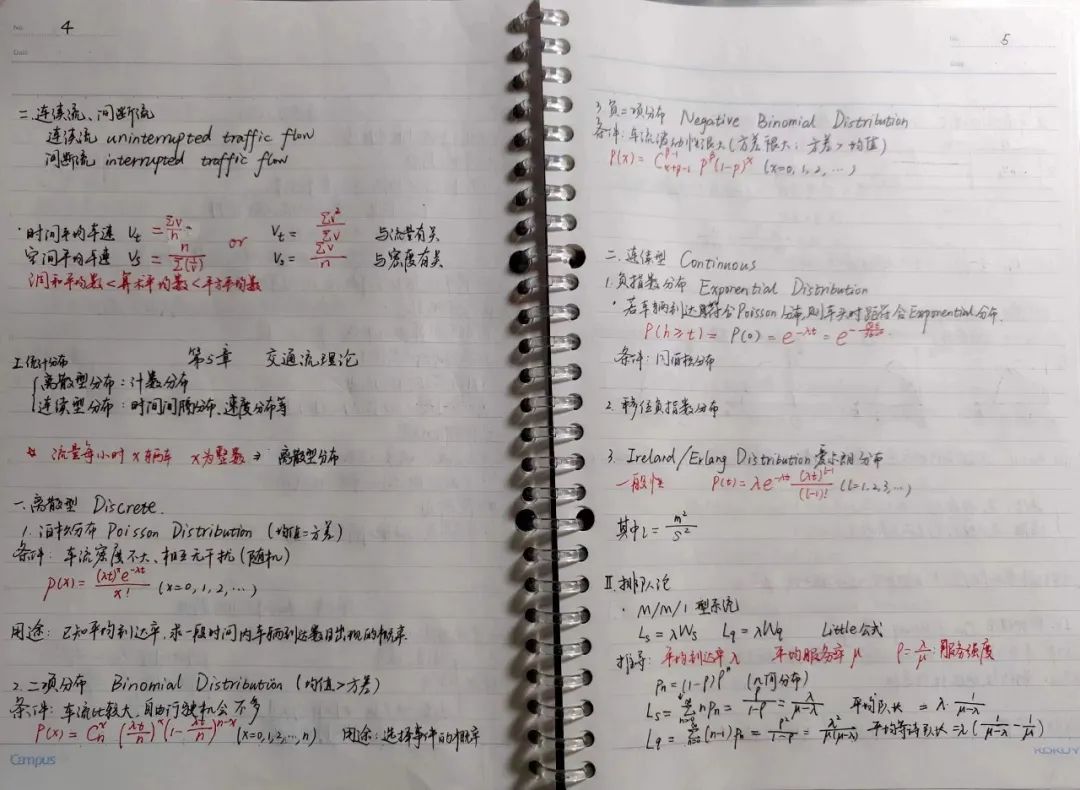 No. 4
Date
二.连续流、间断流
连续流 uninterrupted traffic flow
间断流 interrupted traffic flow
·时间平均车速 Vt = Σv/n or Vt = Σv²/Σv 与流量有关
空间平均车速 Vs = n/Σ(1/v) Vs = Σv/n 与密度有关
调和平均数<算术平均数<平方平均数
第5章 交通流理论
I.统计分布
离散型分布:计数分布
连续型分布:时间间隔分布、速度分布等
☆ 流量每小时 x 辆车 x为整数 ⇒ 离散型分布
一.离散型 Discrete.
1.泊松分布 Poisson Distribution (均值=方差)
条件:车流密度不大、相互无干扰(随机)
P(x) = (λt)^x e^-λt / x! (x=0,1,2,…)
用途:已知平均到达率,求一段时间内车辆到达数目出现的概率
2.二项分布 Binomial Distribution (均值>方差)
条件:车流比较大,自由行驶机会不多
P(x) = Cn^x (λt/n)^x (1-λt/n)^n-x (x=0,1,2,…,n) 用途:选择事件的概率
Campus
No. 5
Date
3.负二项分布 Negative Binomial Distribution
条件:车流波动性很大(方差很大:方差>均值)
P(x) = C^p-1 x+p-1 p^p (1-p)^x (x=0,1,2,…)
二.连续型 Continuous
1.负指数分布 Exponential Distribution
·若车辆到达符合Poisson分布,则车头时距符合Exponential分布.
P(h≥t) = P(0) = e^-λt = e^-
条件:同泊松分布
2.移位负指数分布
3.Ireland/Erlang Distribution 爱尔朗分布
一般性 P(t) = λe^-λt (λt)^l-1/(l-1)! (l=1,2,3,…)
其中l = m²/S²
II.排队论
·M/M/1 型系统
Ls = λWs Lq = λWq Little公式
推导:平均到达率 λ 平均服务率 μ ρ=λ/μ:服务强度
Pn = (1-ρ)ρ^n (几何分布)
Ls = Σ nPn = ρ/1-ρ = λ/μ-λ 平均队长 = λ·1/μ-λ
Lq = Σ(n-1)Pn = ρ²/1-ρ = λ²/μ(μ-λ) 平均等待队长 = λ(1/μ-λ - 1/μ)
KOKUY